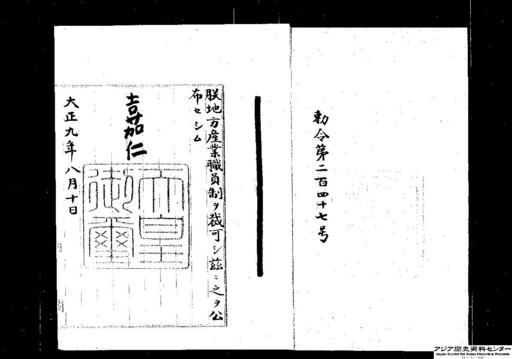 勅令第二百四十七号
朕地方産業職員制ヲ裁可シ茲ニ之ヲ公
布セシム
嘉仁
天皇
御璽
大正九年八月十日
アジア歴史資料センター
Japan Center for Asian Historical Records